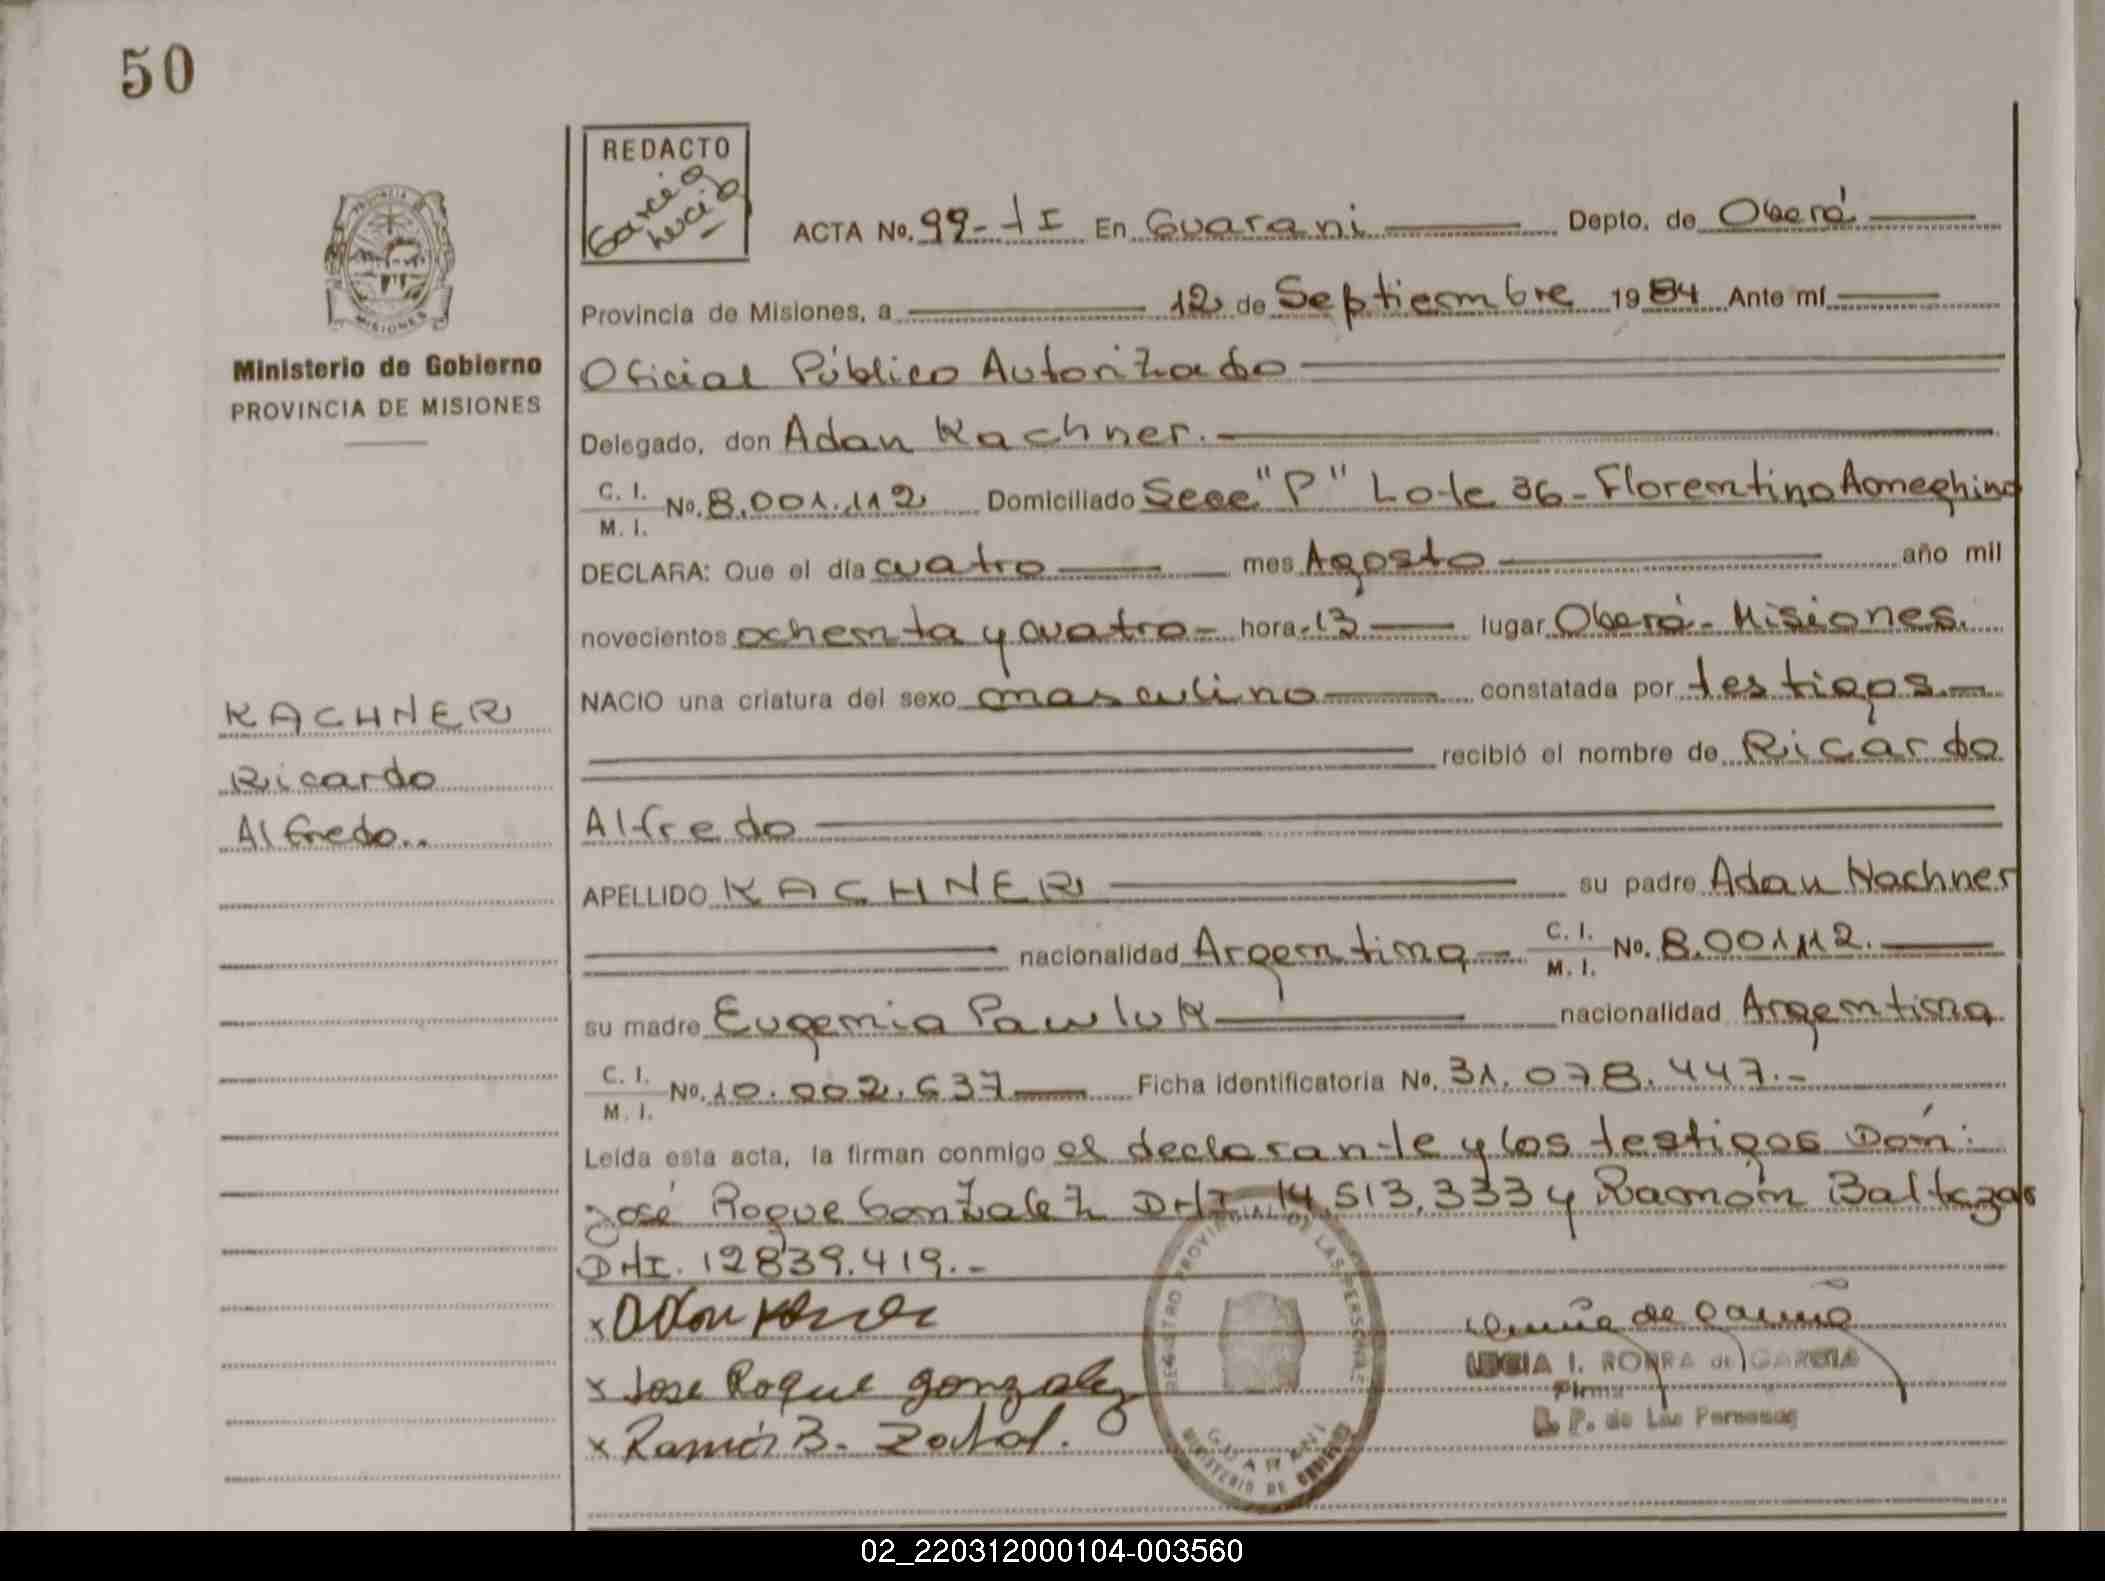 50
REDACTO
García
Lucía
PROVINCIA
MISIONES
Ministerio de Gobierno
PROVINCIA DE MISIONES
ACTA No. 99-tI En Guarani Depto. de Oberá
Provincia de Misiones, a 12 de Septiembre 1984 Ante mí
Oficial Público Autorizado
Delegado, don Adan Kachner.
C. I. M. I. No. 8.001.112 Domiciliado Secc "P" Lote 36 - Florentino Ameghino
DECLARA: Que el día cuatro mes Agosto año mil
novecientos ochenta y cuatro - hora 13 lugar Oberá - Misiones.
NACIO una criatura del sexo masculino constatada por testigos.
recibió el nombre de Ricardo
Alfredo
APELLIDO KACHNER su padre Adan Kachner
nacionalidad Argentina C. I. M. I. No. 8.001.112.
su madre Eugenia Pawluk nacionalidad Argentina
C. I. M. I. No. 10.002.637 Ficha identificatoria No. 31.078.447.-
Leída esta acta, la firman conmigo el declarante y los testigos Don:
José Roque Gonzalez DNI 14.513.333 y Ramón Baltazar
DNI. 12839.419.-
KACHNER
Ricardo
Alfredo..
x Adan
x Jose Roque gonzalez
x Ramón B.
REGISTRO PROVINCIAL DE LAS PERSONAS
GUARANI
MINISTERIO DE GOBIERNO
de García
LUCIA I. de GARCIA
Firma
R. P. de Las Personas
02_220312000104-003560